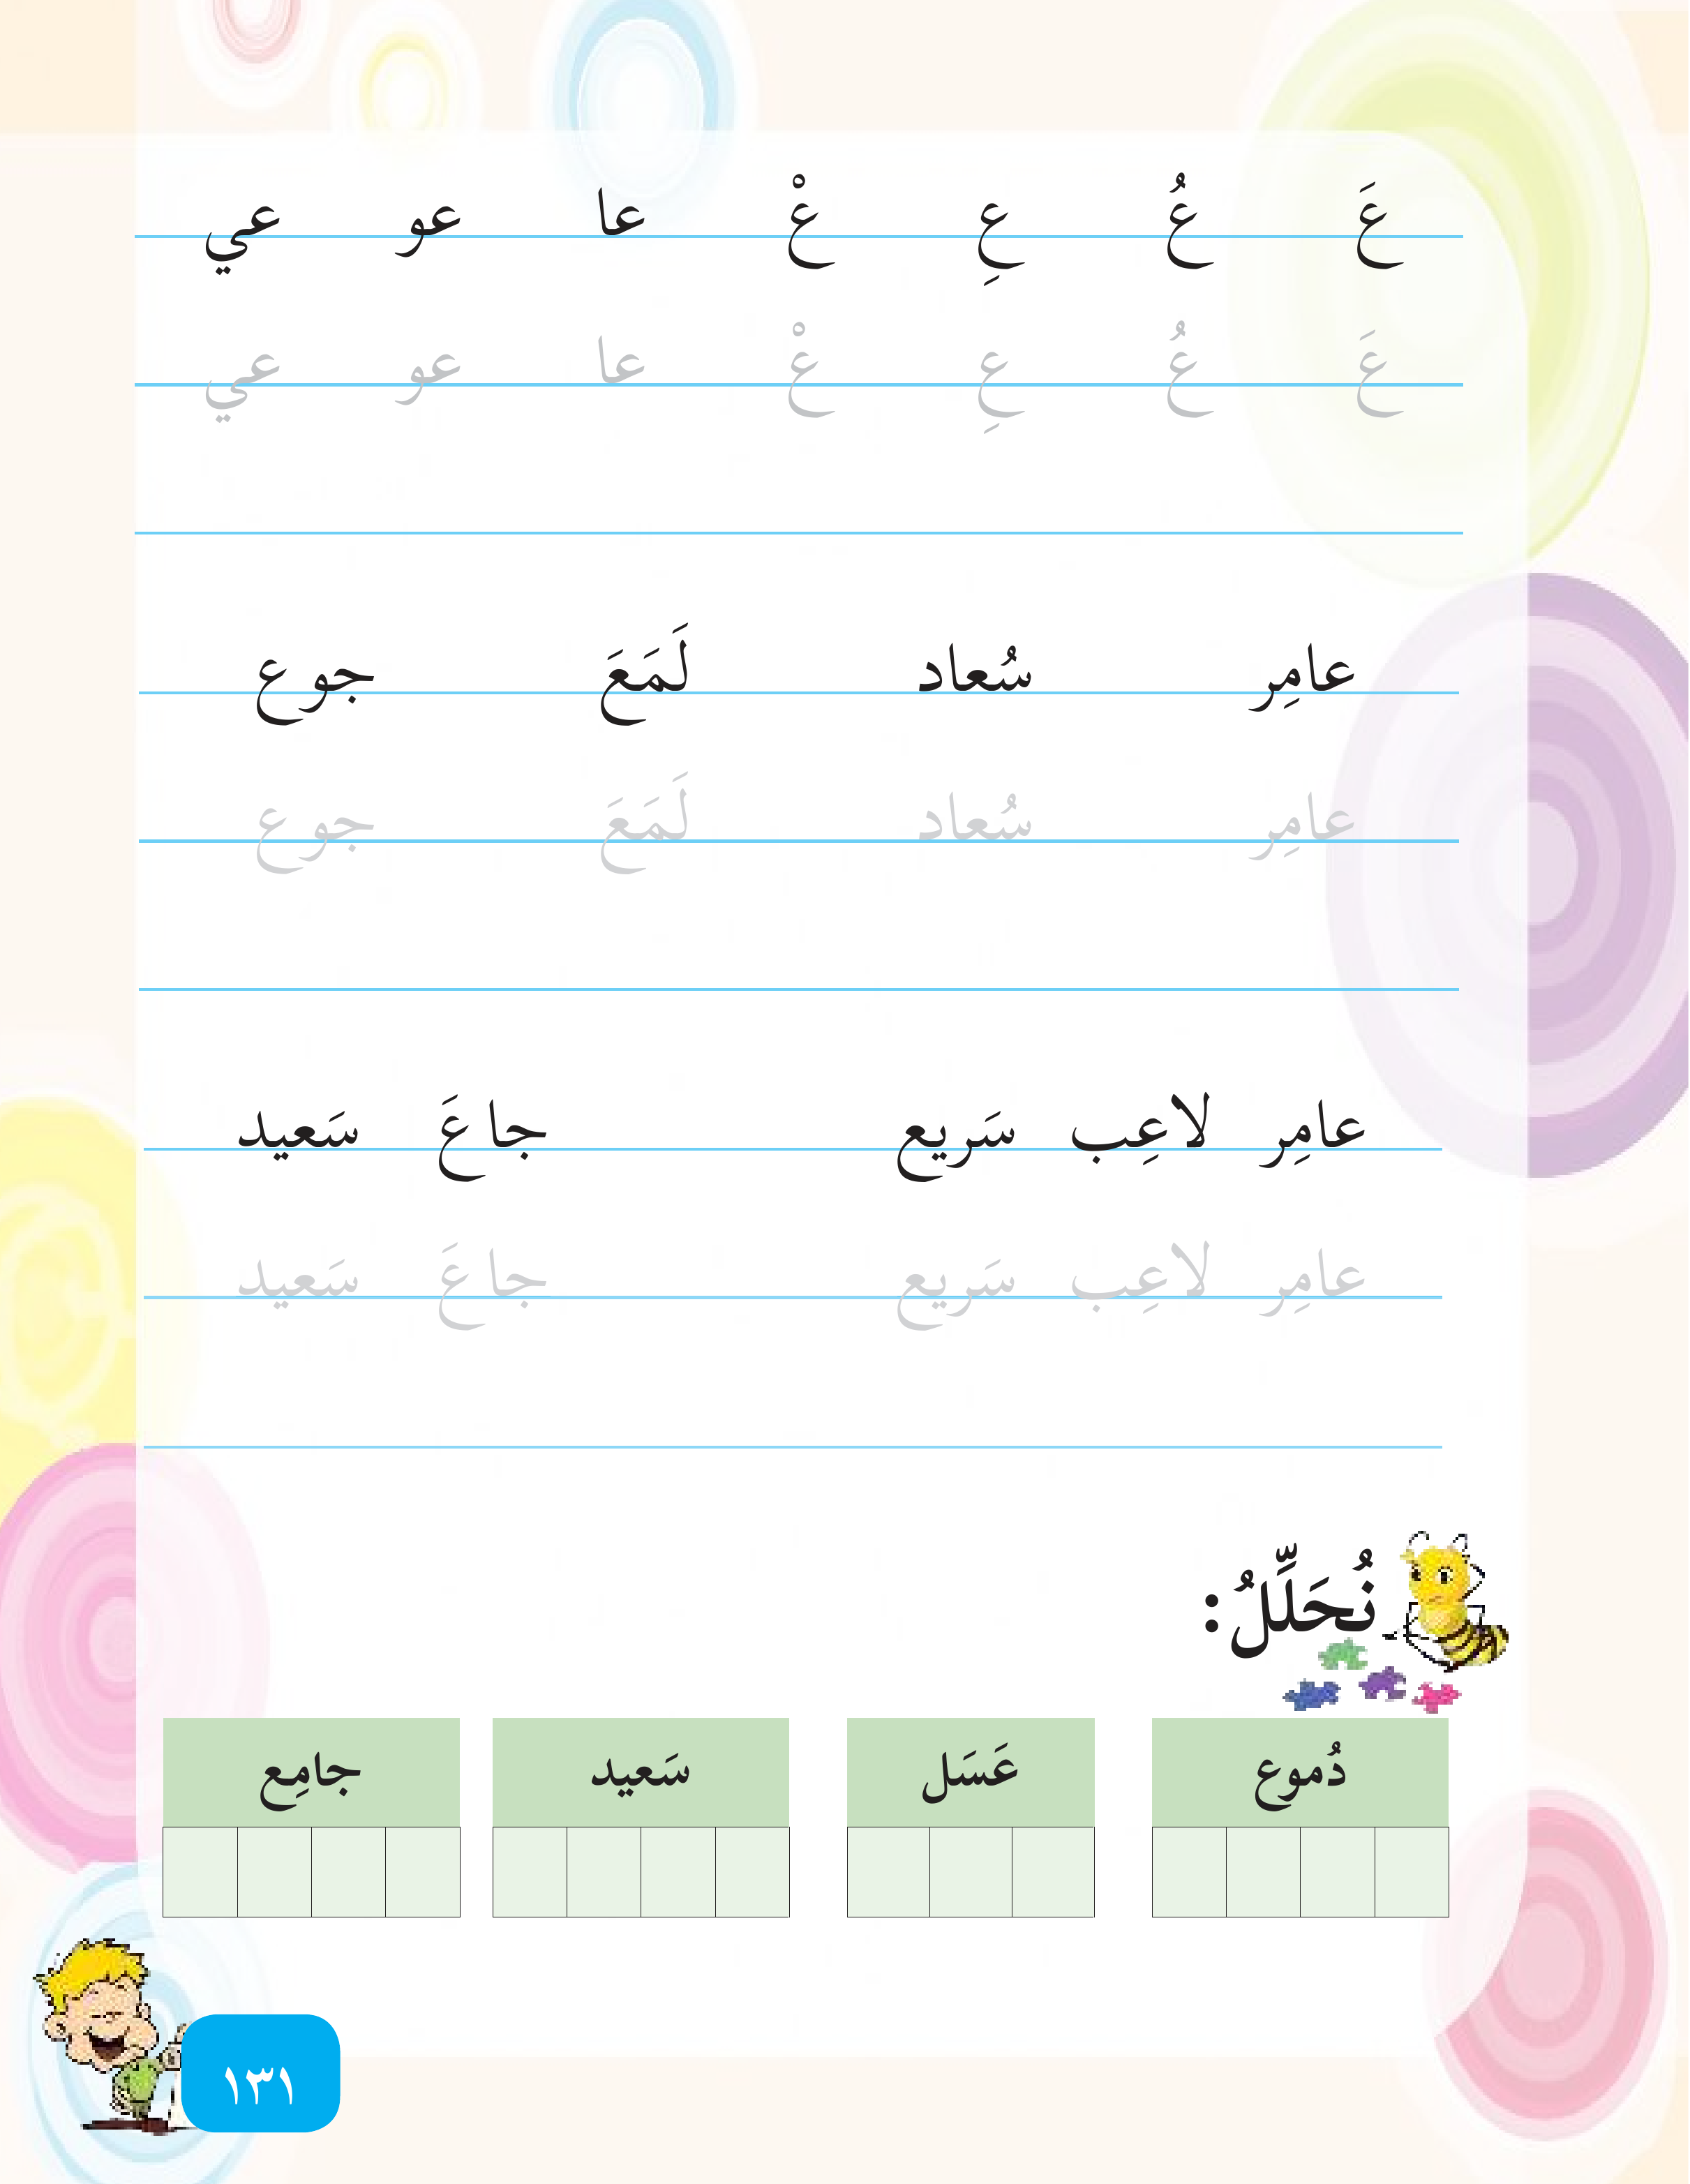 عَ عُ عِ عْ عا عو عي
عَ عُ عِ عْ عا عو عي
عامِر سُعاد لَمَعَ جوع
عامِر سُعاد لَمَعَ جوع
عامِر لاعِب سَريع جاعَ سَعيد
عامِر لاعِب سَريع جاعَ سَعيد
نُحَلِّلُ:
دُموع عَسَل سَعيد جامِع
١٣١